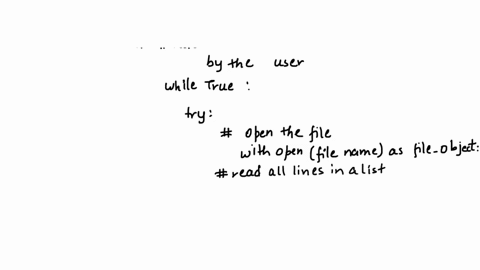 by the user
while True :
try:
# open the file
with open (file name) as file_object:
# read all lines in a list